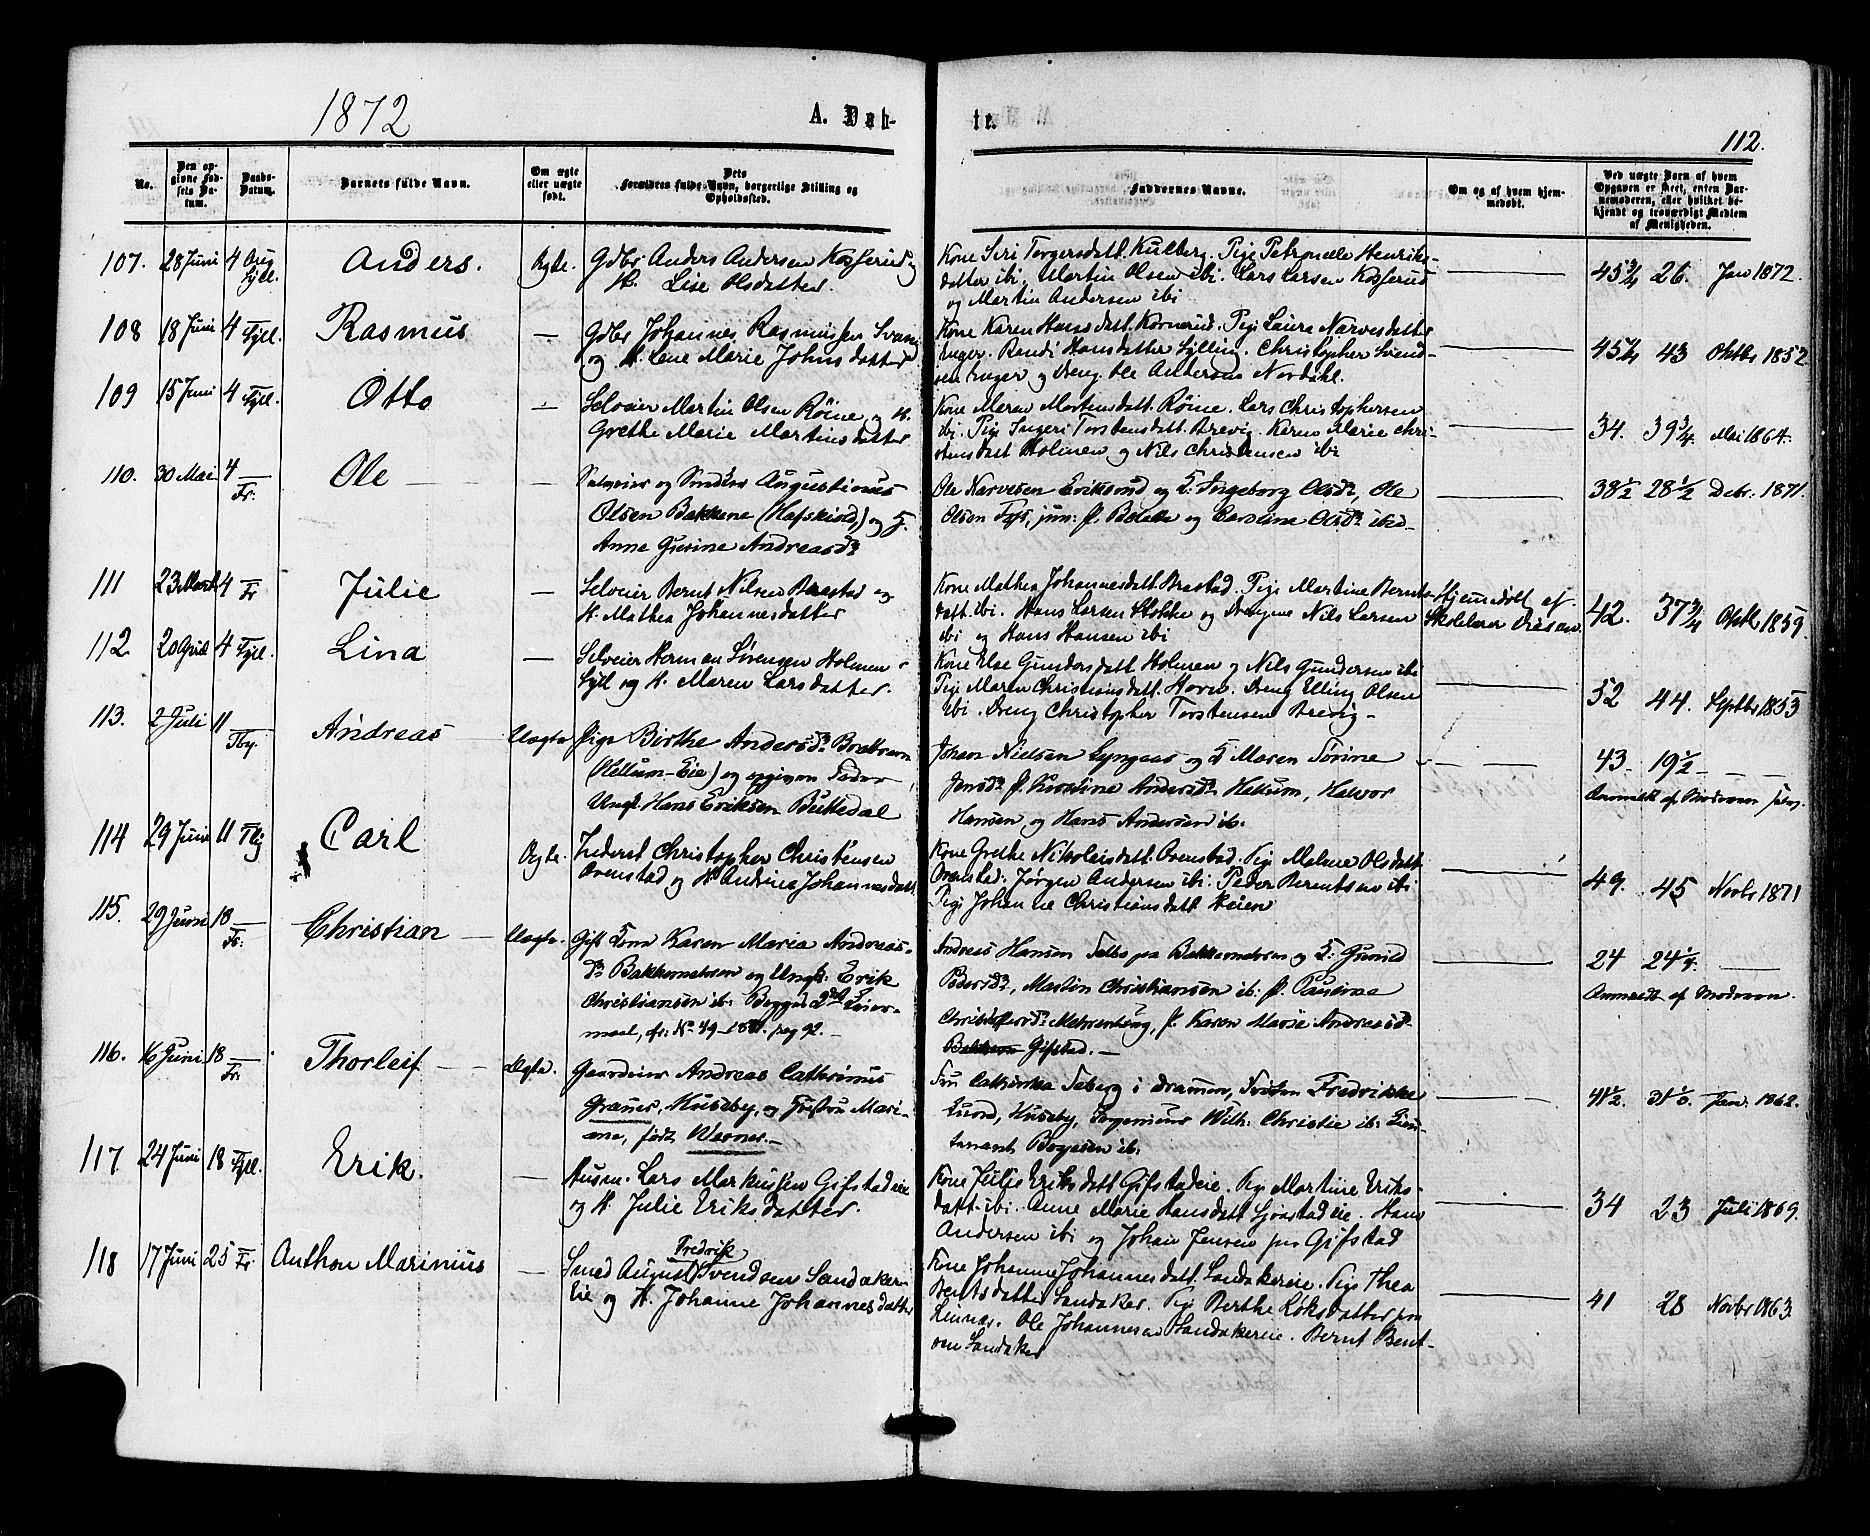 1872
A. Døb-
te.
112.
No.
Den opgivne Fødsels Datum.
Daabs-Datum.
Barnets fulde Navn.
Om ægte eller uægte født.
Dets Forældres fulde Navn, borgerlige Stilling og Opholdssted.
Faddernes Navne.
Om og af hvem hjemmedøbt.
Ved uægte Børn af hvem Opgaven er skeet, enten Barnemoderen, eller hvilket bekjendt og troværdigt Medlem af Menigheden.
107. 28 Juni 4 Aug Syll. Anders. Ægte. Gdbr Anders Andersen Kosserud og
H. Lise Olsdatter.
Kone Siri Torgersdatt. Kulberg. Pige Petronelle Henriks-
datter ibi. Martin Olsen ibi. Lars Larsen Kosserud
og Martin Andersen ibi
45 3/4 26. Jan 1872.
108 18 Juni 4 Syll. Rasmus — Gdbr Johannes Rasmussen Svang
og H. Lene Marie Johnsdatter
Kone Karen Hansdatt. Kornerud. Pige Laura Narvesdatter
Enger. Randi Hansdatter Sylling. Christopher Svend-
sen Enger og Dreng. Ole Andersen Nordahl.
43 Oktbr 1852.
109 15 Juni 4 Syll. Otto — Selveier Martin Olsen Röine og H.
Grethe Marie Martinsdatter
Kone Maren Mortensdatt. Röine. Lars Christophersen
ibi. Pige Ingeri Torstensdatt. Brevig. Karen Marie Chri-
stensdatt Holmen og Nils Christensen ibi
34. 39 3/4. Mai 1864.
110. 30 Mai 4 Fr. Ole — Selveier og Snedker Augustinus
Olsen Bakkene (Hafskiold) og H.
Anne Gurine Andreasdr
Ole Narvesen Eriksrud og K. Ingeborg Olsdr, Ole
Olsen Foss, jun: P. Beate og Caroline Olsdr ibid.
38 1/2 28 1/2 Debr. 1871.
111 23 Marts 4 Fr Julie — Selveier Bernt Nilsen Brastad og
H. Mathea Johannesdatter
Kone Mathea Johannesdatt. Brastad. Pige Martine Bernts-
datt. ibi. Hans Larsen Stokke og Drengene Nils Larsen
ibi og Hans Hansen ibi
Hjemmedøbt af
Skolelærer
42. 37 3/4 Oktb 1859.
112. 20 April 4 Syll. Lina — Selveier Herman Sørensen Holmen i
Syll og H. Maren Larsdatter.
Kone Else Gundersdatt. Holmen og Nils Gundersen ibi
Pige Maren Christiansdatt. Horn. Dreng Elling Olsen
ibi. Dreng Christopher Torstensen Brevig.
52 44. Septbr 1853
113. 2 Juli 11 Tby. Andreas Uægte Pige Birthe Andersdr Brattum
(Hellum-Eie) og opgiven Fader
Ungk. Hans Eriksen Buttedal
Johan Nielsen Lyngaas og K. Maren Sørine
Jensdr P. Kirstine Andersdr Hellum, Halvor
Hansen, og Hans Andersen ib.
43 19 1/2
Anmeldt af Moderen
114 29 Juni 11 Tby Carl Ægte. Inderst Christopher Christensen
Ovenstad og H. Andrine Johannesdatt
Kone Grethe Nikolaisdatt. Ovenstad. Pige Malene Olsdatt.
Ovenstad. Jørgen Andersen ibi. Peder Berentsen ibi
Pige Johanne Christiansdatt Heien
49. 45 Novbr 1871
115. 29 Juni 18 Tr. Christian Uægte. Gift Kone Karen Maria Andreas-
dr Bakkerneiren og Ungk. Erik
Christiansen ib. Begges 2det Leier-
maal, cfr: No 49-1871. pag 92.
Andreas Hansen og K. Gunild
Pedersdr, Martin Christiansen ib. P. Pauline
P. Karen Marie Andreasd.
Gifstad.
24 24 1/4
Anmeldt af Moderen.
116. 16 Juni 18 Tr. Thorleif Ægte. Gaardeier Andreas Cathrinus
Grønes, Huseby, og Frue Mari-
ne, født Werner.
Fru Cathinka Seberg i Drammen, Frøken Fredrikke
Huseby, Ingenieur Wilh: Christie ib: Lieu-
tenant Boyesen ib.
41 1/2. Jan: 1862.
117. 24 Juni 18 Syll. Erik. — Husm. Lars Markussen Gifstadeie
og H. Julie Eriksdatter.
Kone Julie Eriksdatt Gifstadeie. Pige Martine Eriks-
datt. ibi. Anne Marie Hansdatt Gifstadeie. Hans
Andersen ibi og Johan Jensen paa Gifstad
34 23 Juli 1869.
118 17 Juni 25 Fr. Anthon Marinius — Smed August Fredrik Svendsen Sandaker-
Eie og H. Johanne Johannesdatter
Kone Johanne Johannesdatt. Sandakereie. Pige Thea
Berntsdatter Sandaker. Pige Berthe datter paa
Ole Johannesen Sandakereie. Bernt Bent-
sen Sandaker
41 28 Novbr 1863